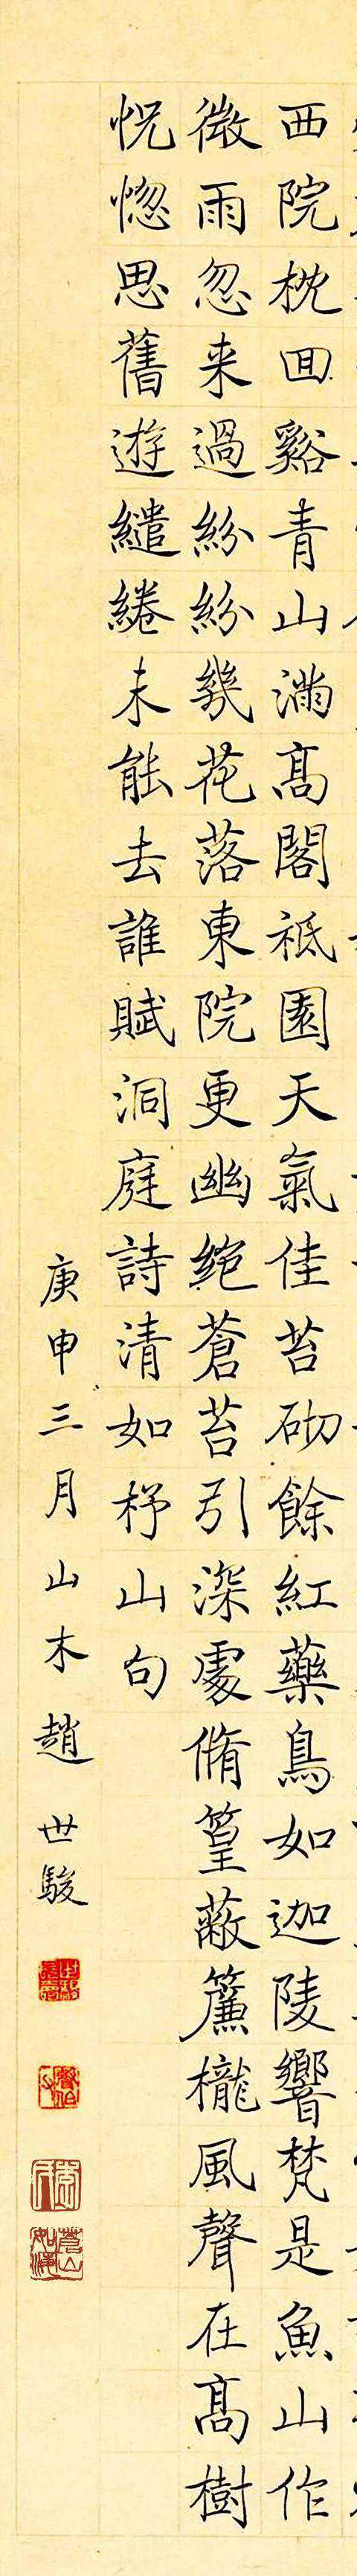 西院枕回谿青山満高閣祗園天氣佳苔砌餘紅藥鳥如迦陵響梵是魚山作
微雨忽来過紛紛幾花落東院更幽絕蒼苔引深處脩篁蔽簾櫳風聲在高樹
怳惚思舊遊繾綣未能去誰賦洞庭詩清如杼山句
庚申三月山木趙世駿